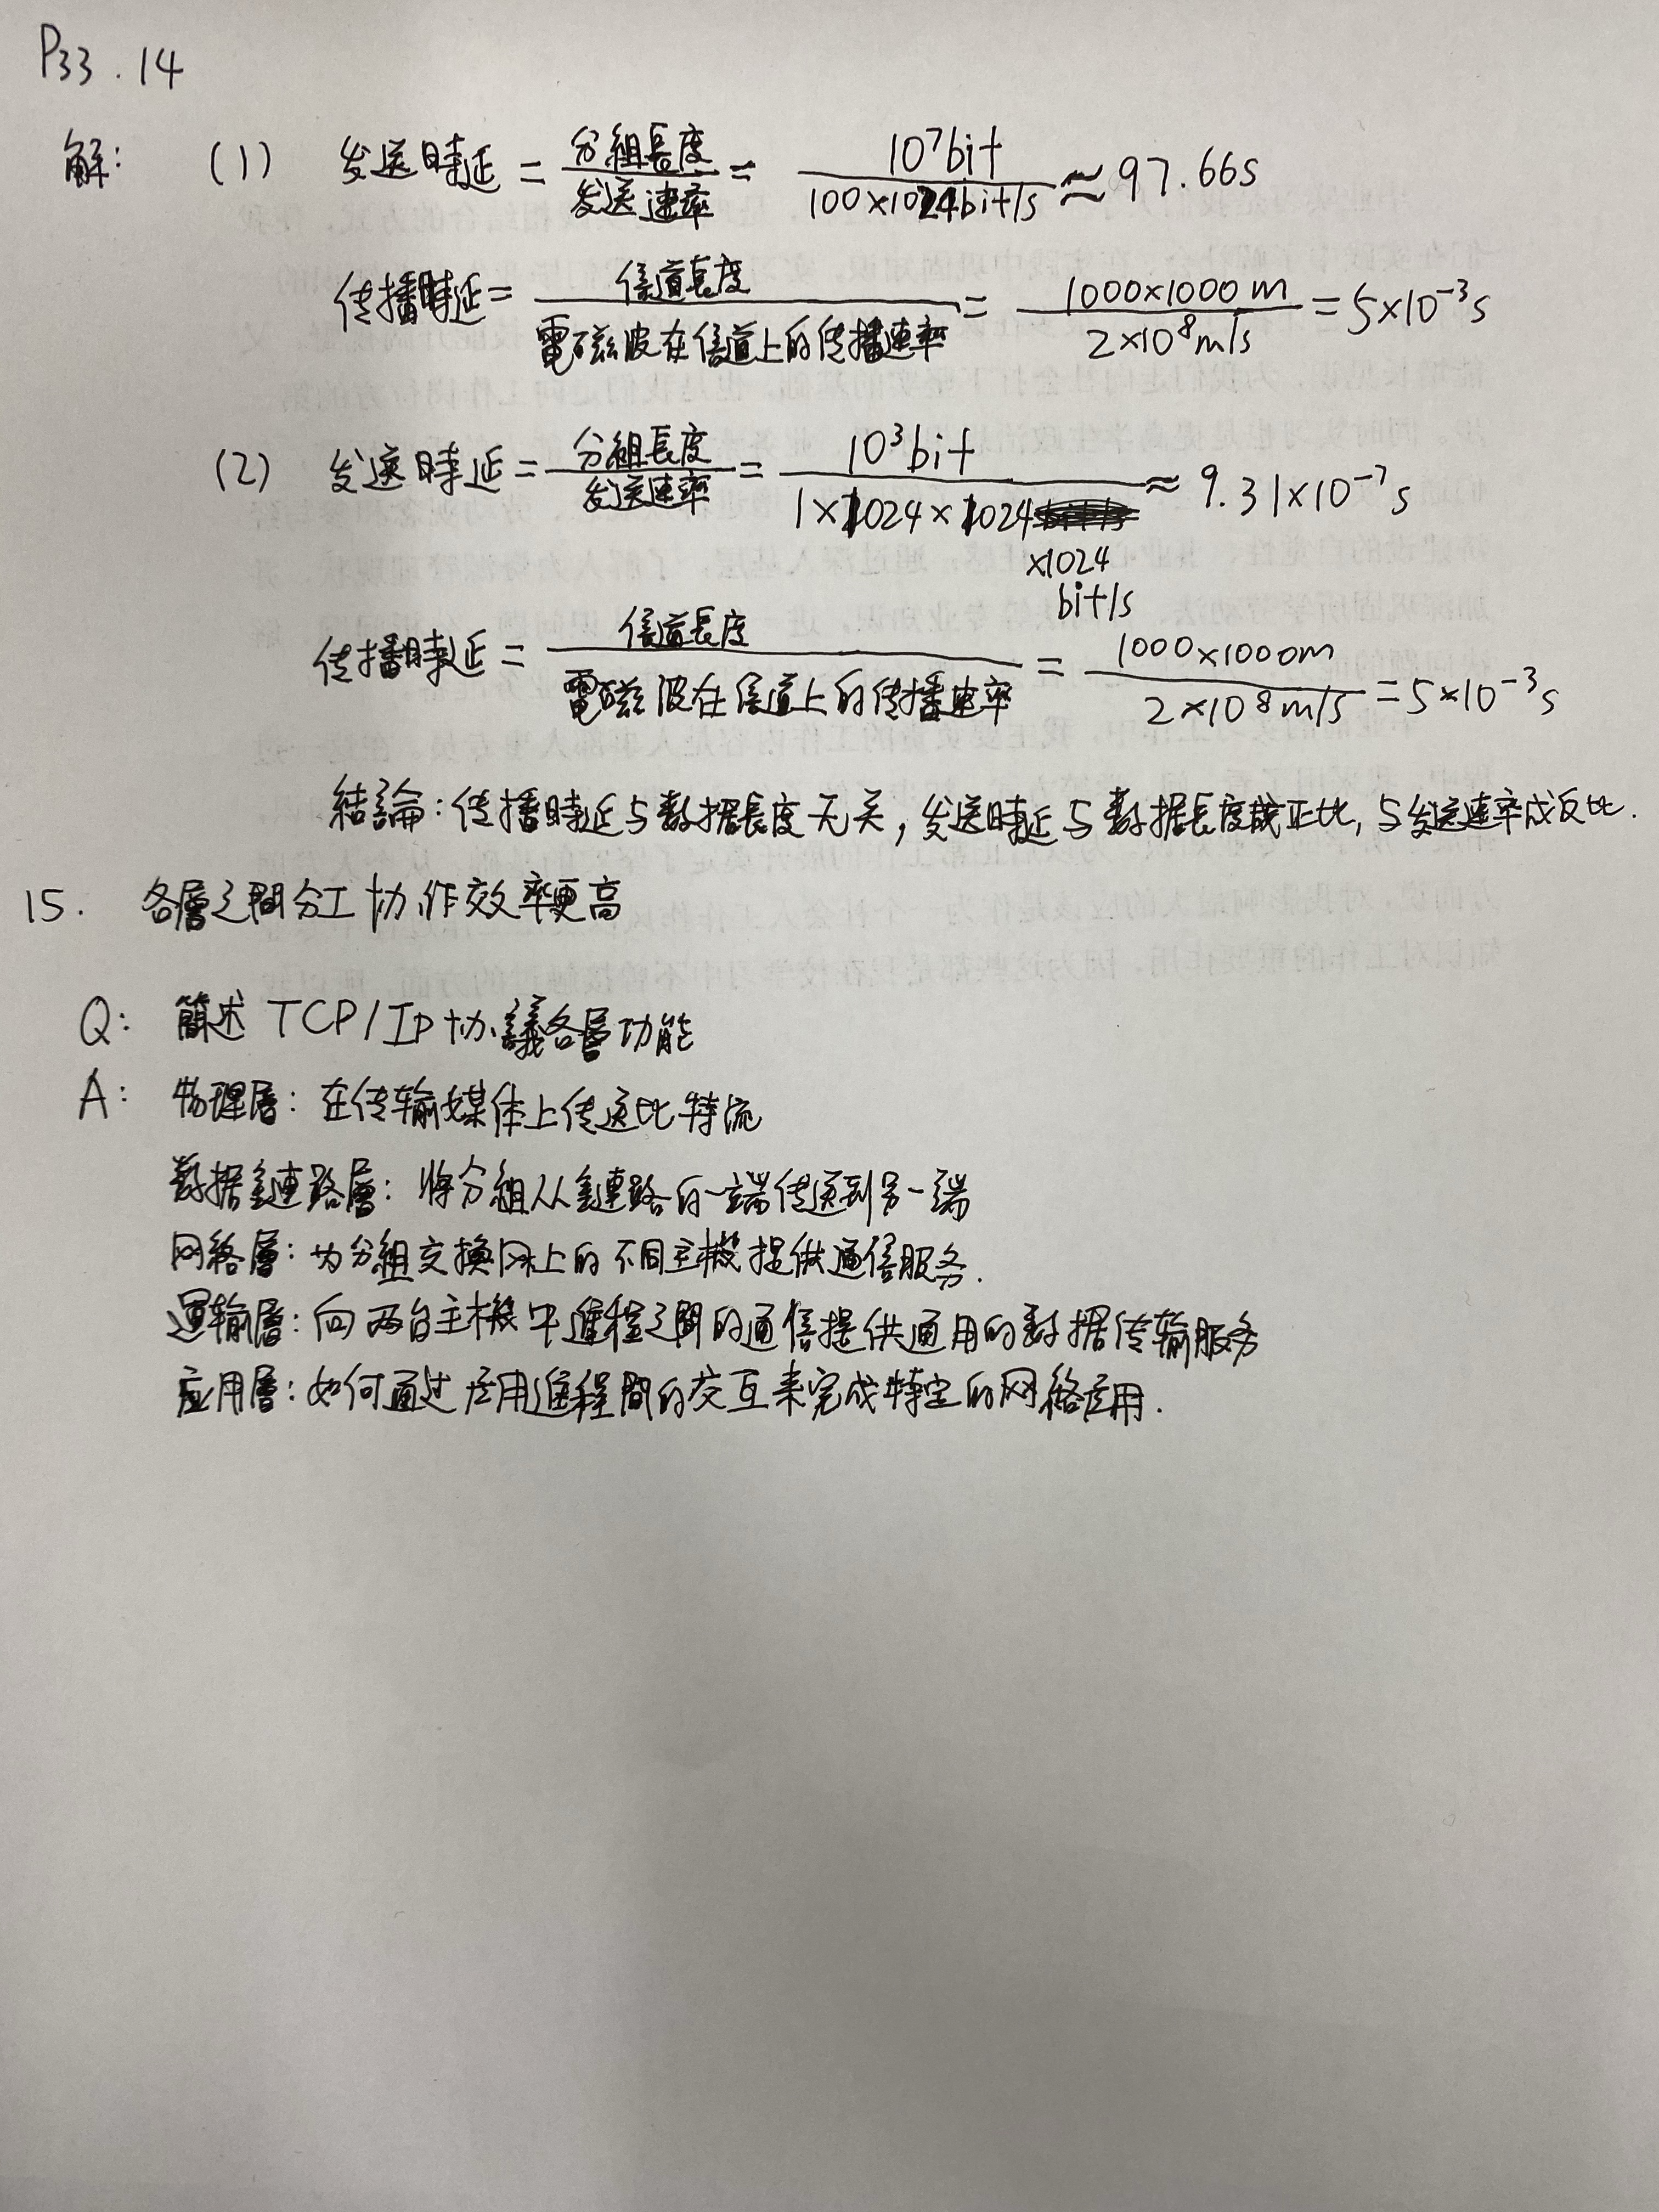 P33.14
解: (1) 发送時延 = 分組長度/发送速率 = 10⁷bit/100×1024bit/s ≈ 97.66s
传播時延 = 信道長度/電磁波在信道上的传播速率 = 1000×1000m/2×10⁸m/s = 5×10⁻³s
(2) 发送時延 = 分組長度/发送速率 = 10³bit/1×1024×1024×1024bit/s ≈ 9.31×10⁻⁷s
传播時延 = 信道長度/電磁波在信道上的传播速率 = 1000×1000m/2×10⁸m/s = 5×10⁻³s
結論:传播時延与数据長度无关,发送時延与数据長度成正比,与发送速率成反比.
15. 各層之間分工协作效率更高
Q: 簡述TCP/IP协議各層功能
A: 物理層:在传输媒体上传送比特流
数据鏈路層:将分組从鏈路的一端传送到另一端
网络層:为分組交換网上的不同主機提供通信服务.
運输層:向两台主機中進程之間的通信提供通用的数据传输服务
应用層:如何通过应用進程間的交互来完成特定的网絡应用.